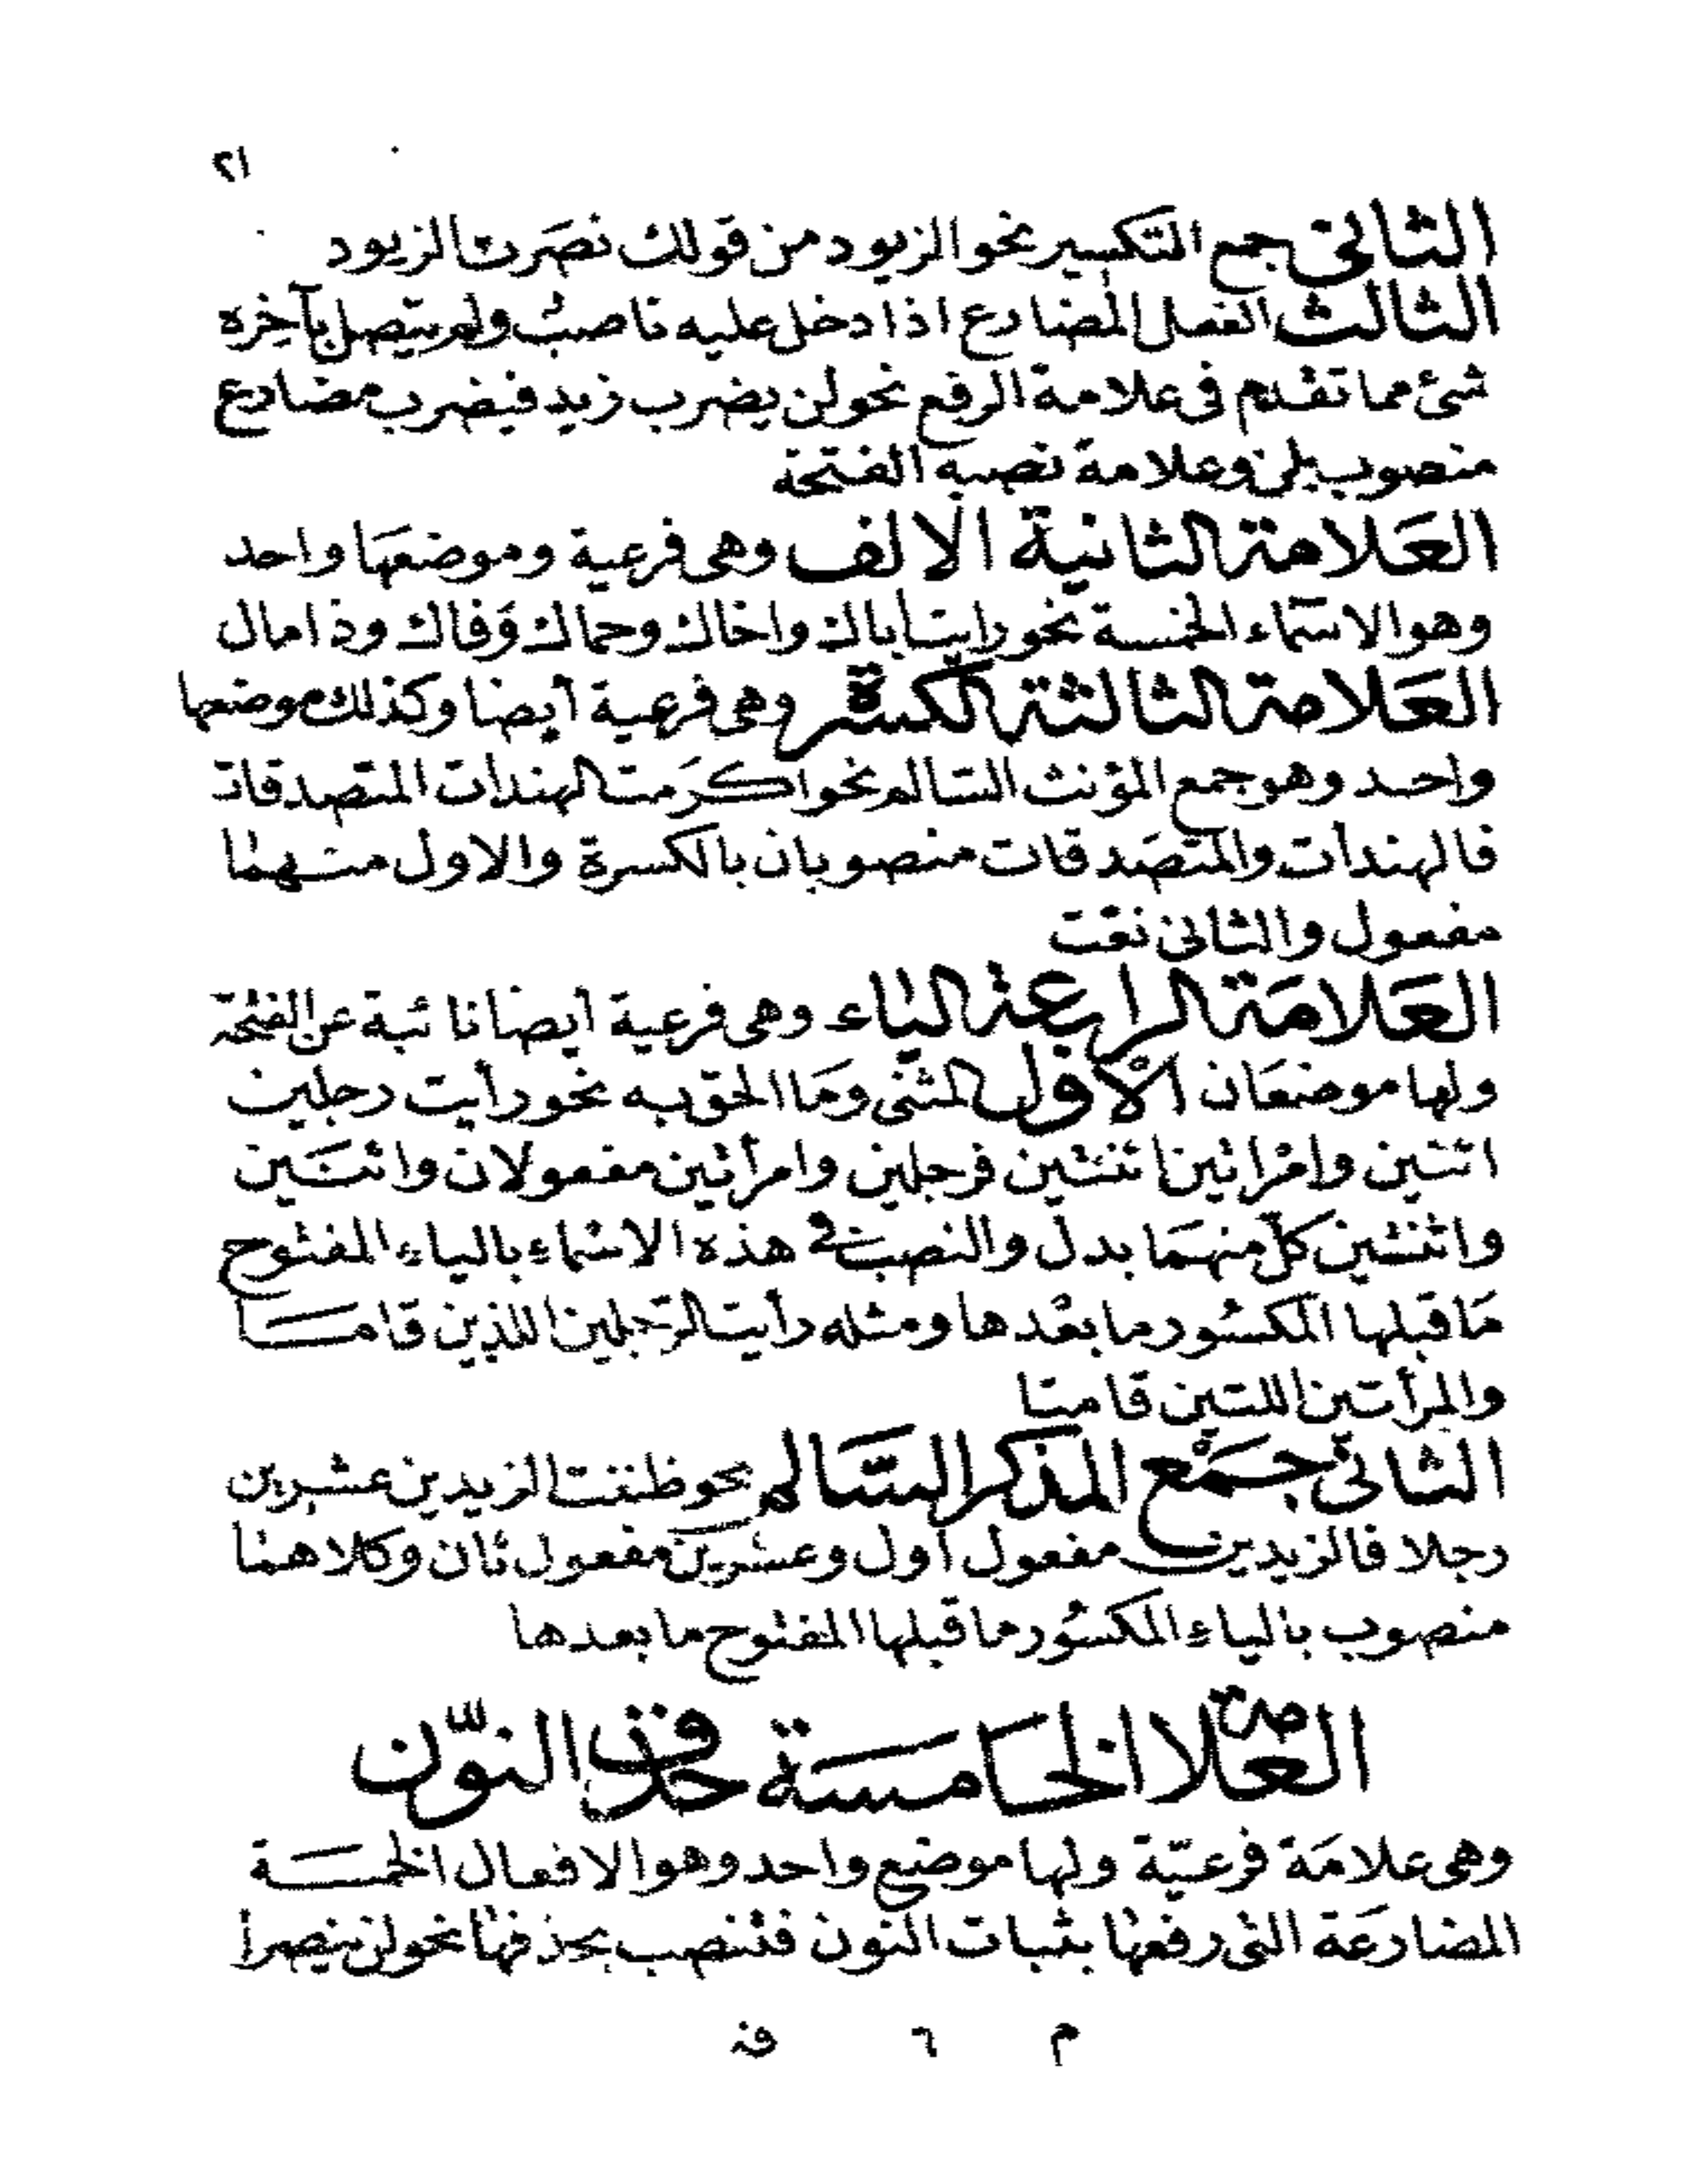 ٢١
الثانى جمع التكسير نحو الزيود من قولك نصَرت الزيود
الثالث الفعل المضارع اذا دخل عليه ناصبٌ ولم يتصل بآخره
شئ مما تقدم فى علامة الرفع نحو لن يضرب زيد فيضرب مضارع
منصوب بلن وعلامة نصبه الفتحة
العَلامة الثانية الالف وهى فرعية وموضعهَا واحد
وهو الاسمَاء الخمسة نحو رايت أباك واخاك وحماك وَفاك وذا مال
العَلامة الثالثة الكسرة وهى فرعية أيضا وكذلك موضعها
واحد وهو جمع المؤنث السَالم نحو اكرَمت الهندات المتصدقات
فالهندات والمتصَدقات منصوبان بالكسرة والاول منهما
مفعول والثانى نعت
العَلامَة الرابعة الياء وهى فرعية أيضا نائبة عن الفتحة
ولها موضعَان الأول المثنى وَمَا الحق به نحو رأيت رجلين
اثنين وامْرأتين اثنتين فرجلين وامرأتين مفعولان واثنَين
واثنتين كلّ منهمَا بدل والنصب فى هذه الاسماء بالياء المفتوح
مَا قبلها المكسُور ما بعْدها ومثله رأيت الرَجلين اللذين قامَا
والمرأتين اللتين قامتا
الثانى جمَعْ المذكر السَّالم نحو ظننت الزيدين عشرين
رجلا فالزيدين مفعول أول وعشرين مفعول ثان وكلاهما
منصوب بالياء المكسُور ما قبلها المفتوح ما بعدها
العَلامة الخامسَة حذف النوّن
وهى علامَة فرعيّة ولها موضع واحد وهو الافعال الخمسَة
المضارعَة التى رفعها بثبات النون فتنصب بحذفها نحو لن ينصرا
م ٦ فن